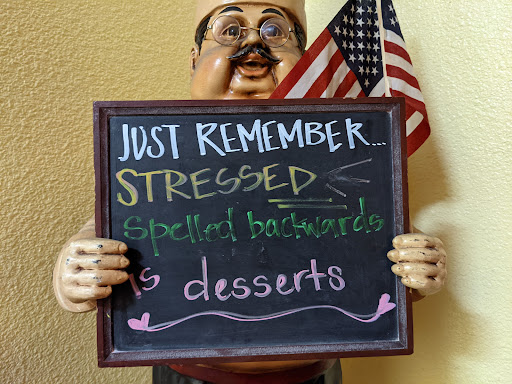 JUST REMEMBER...
STRESSED
Spelled backwards
is desserts